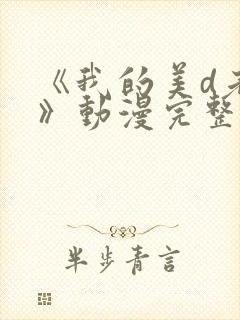 《我的美d
》動漫完整
半步青言